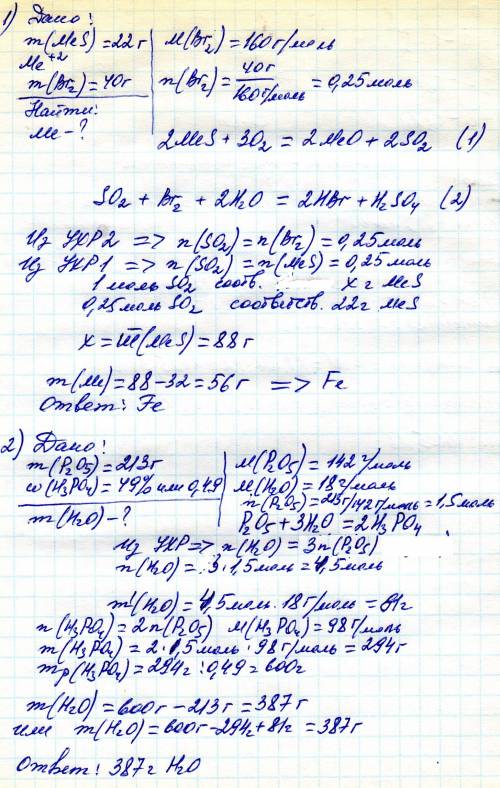 1) Дано:
m(MeS)=22г M(Br2)=160г/моль
Me+2
m(Br2)=40г n(Br2)=40г/160г/моль=0,25моль
Найти:
Me-?
2MeS+3O2=2MeO+2SO2 (1)
SO2+Br2+2H2O=2HBr+H2SO4 (2)
Из УХР2 => n(SO2)=n(Br2)=0,25моль
Из УХР1 => n(SO2)=n(MeS)=0,25моль
1 моль SO2 соотв. x г MeS
0,25моль SO2 соответств. 22г MeS
x=m(MeS)=88г
m(Me)=88-32=56г => Fe
Ответ: Fe
2) Дано:
m(P2O5)=213г M(P2O5)=142г/моль
w(H3PO4)=49% или 0,49 M(H2O)=18г/моль
n(P2O5)=213г/142г/моль=1,5моль
m(H2O)-? P2O5+3H2O=2H3PO4
Из УХР=> n(H2O)=3n(P2O5)
n(H2O)=3·1,5моль=4,5моль
m'(H2O)=4,5моль·18г/моль=81г
n(H3PO4)=2n(P2O5) M(H3PO4)=98г/моль
m(H3PO4)=2·1,5моль·98г/моль=294г
mр(H3PO4)=294г:0,49=600г
m(H2O)=600г-213г=387г
или m(H2O)=600г-294г+81г=387г
Ответ: 387г H2O